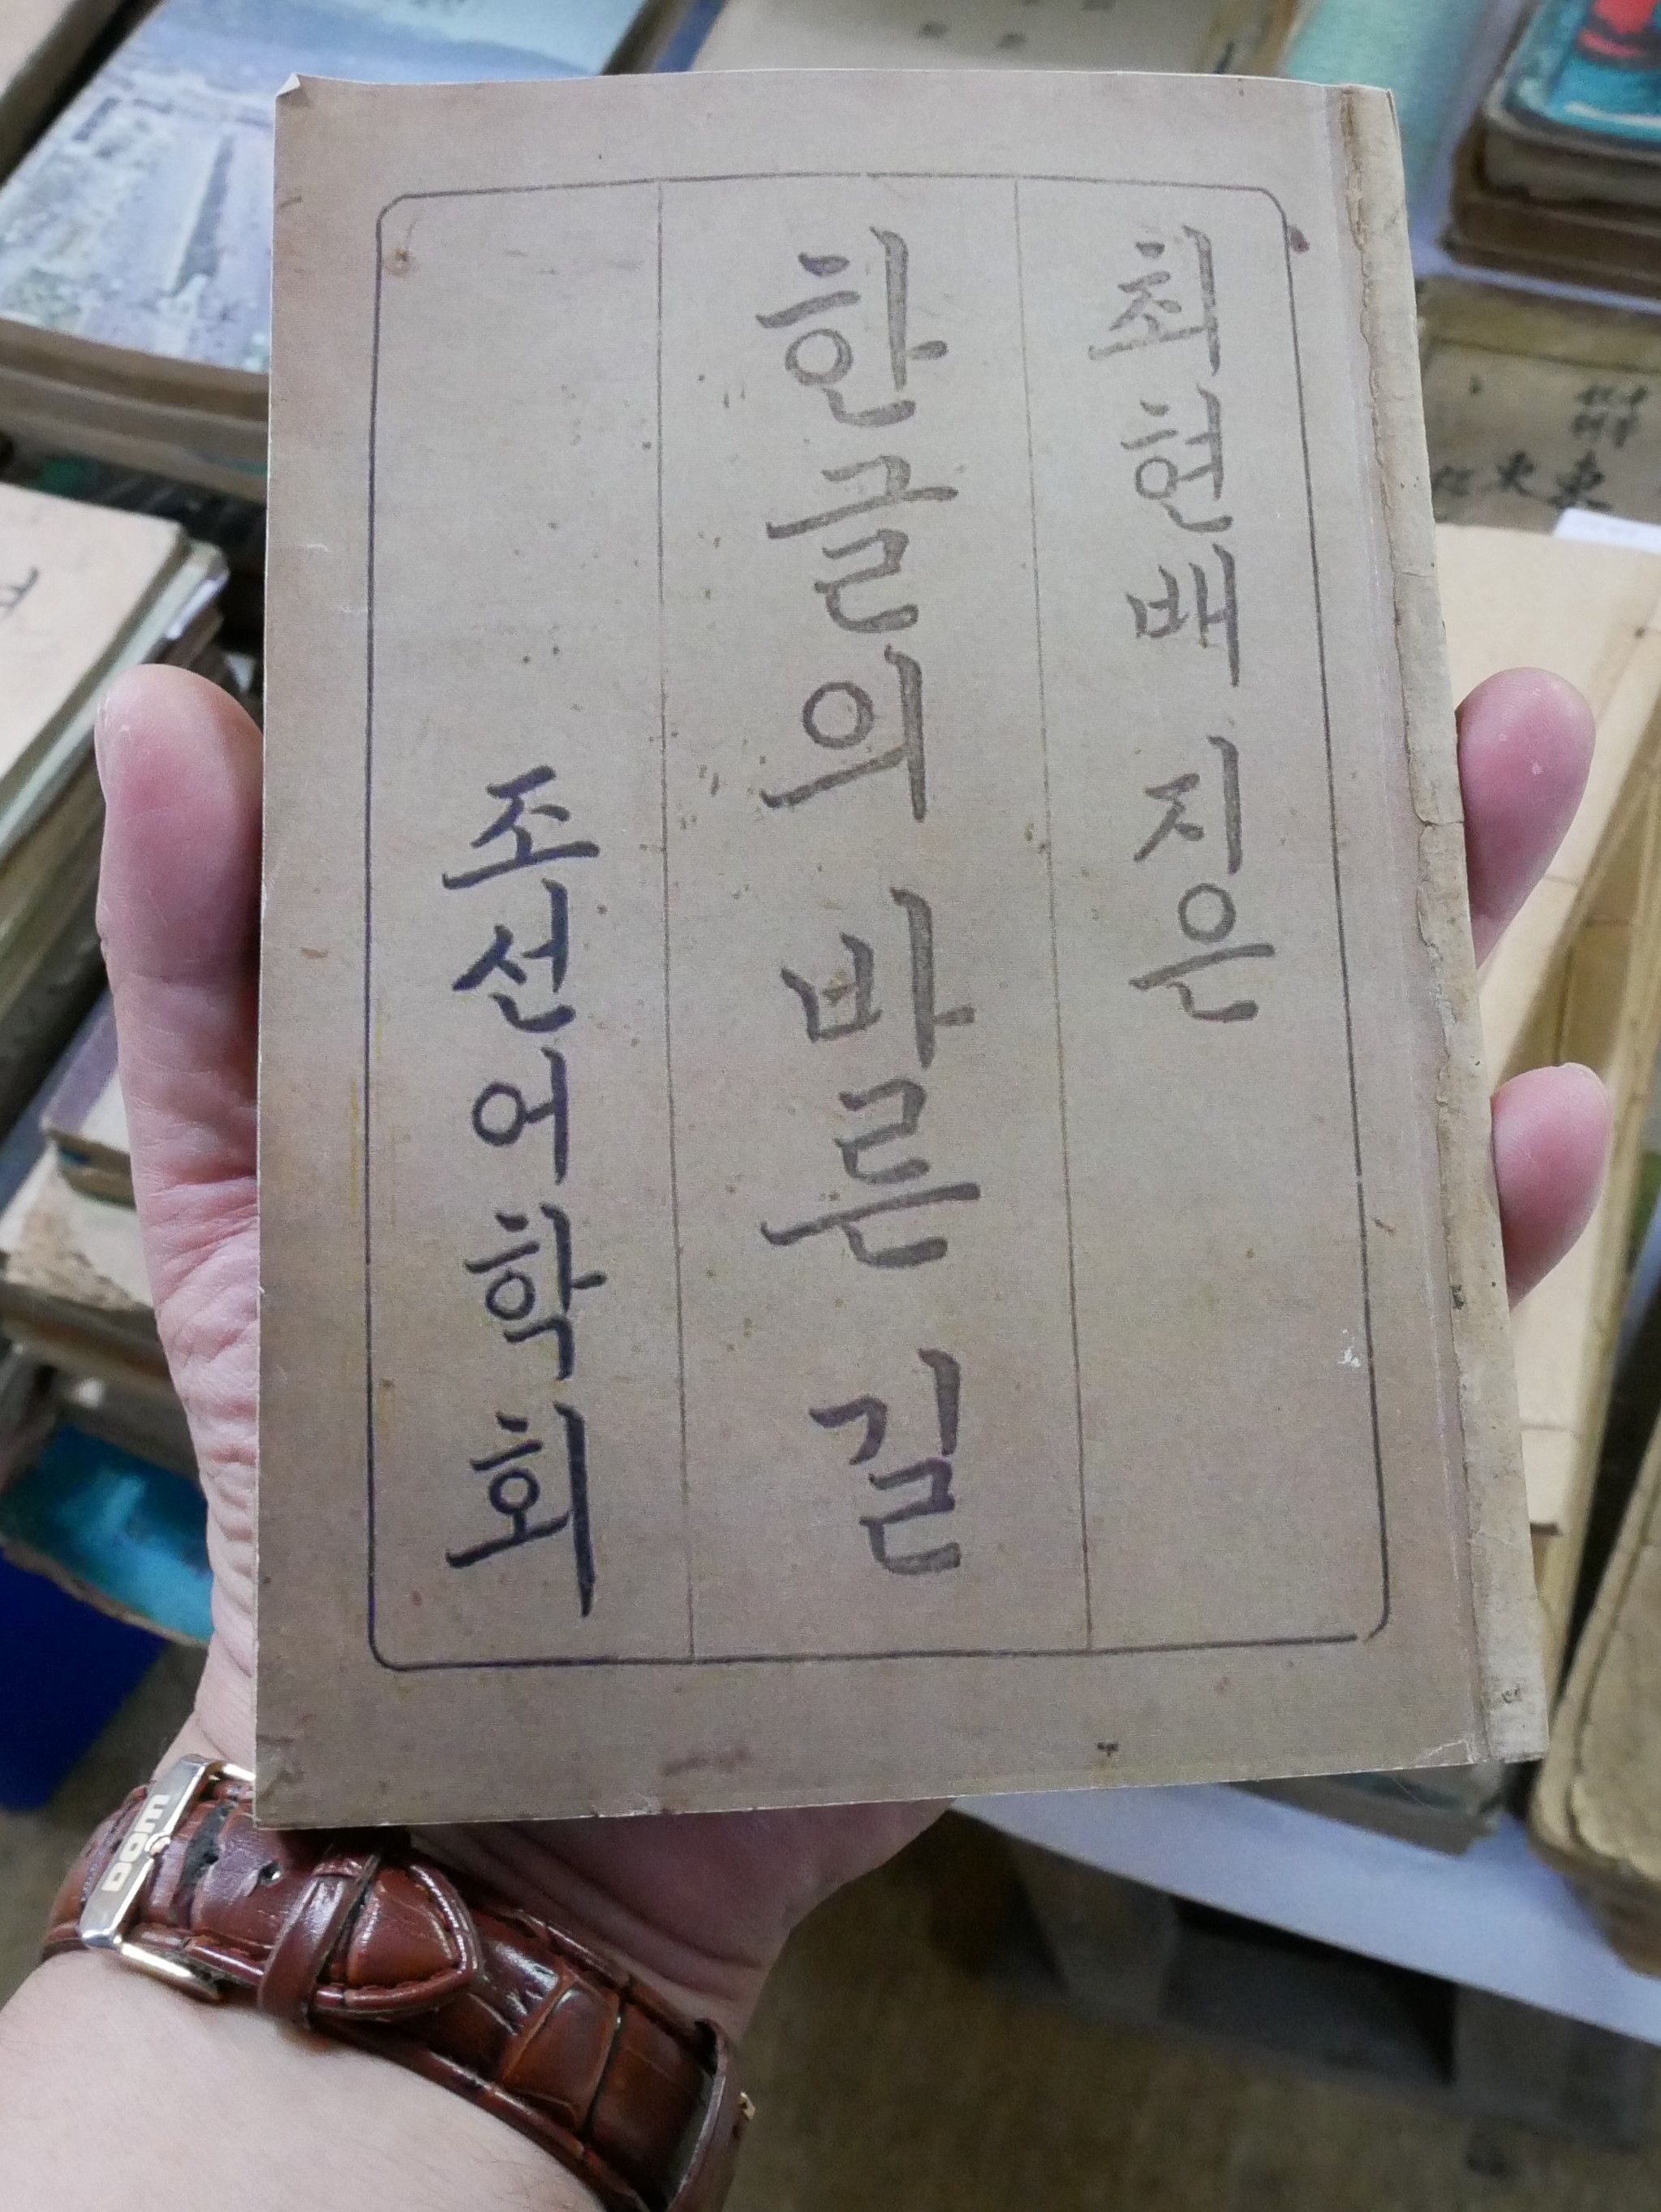 최현배 지은
한글의 바른 길
조선어학회
DOM
東
東